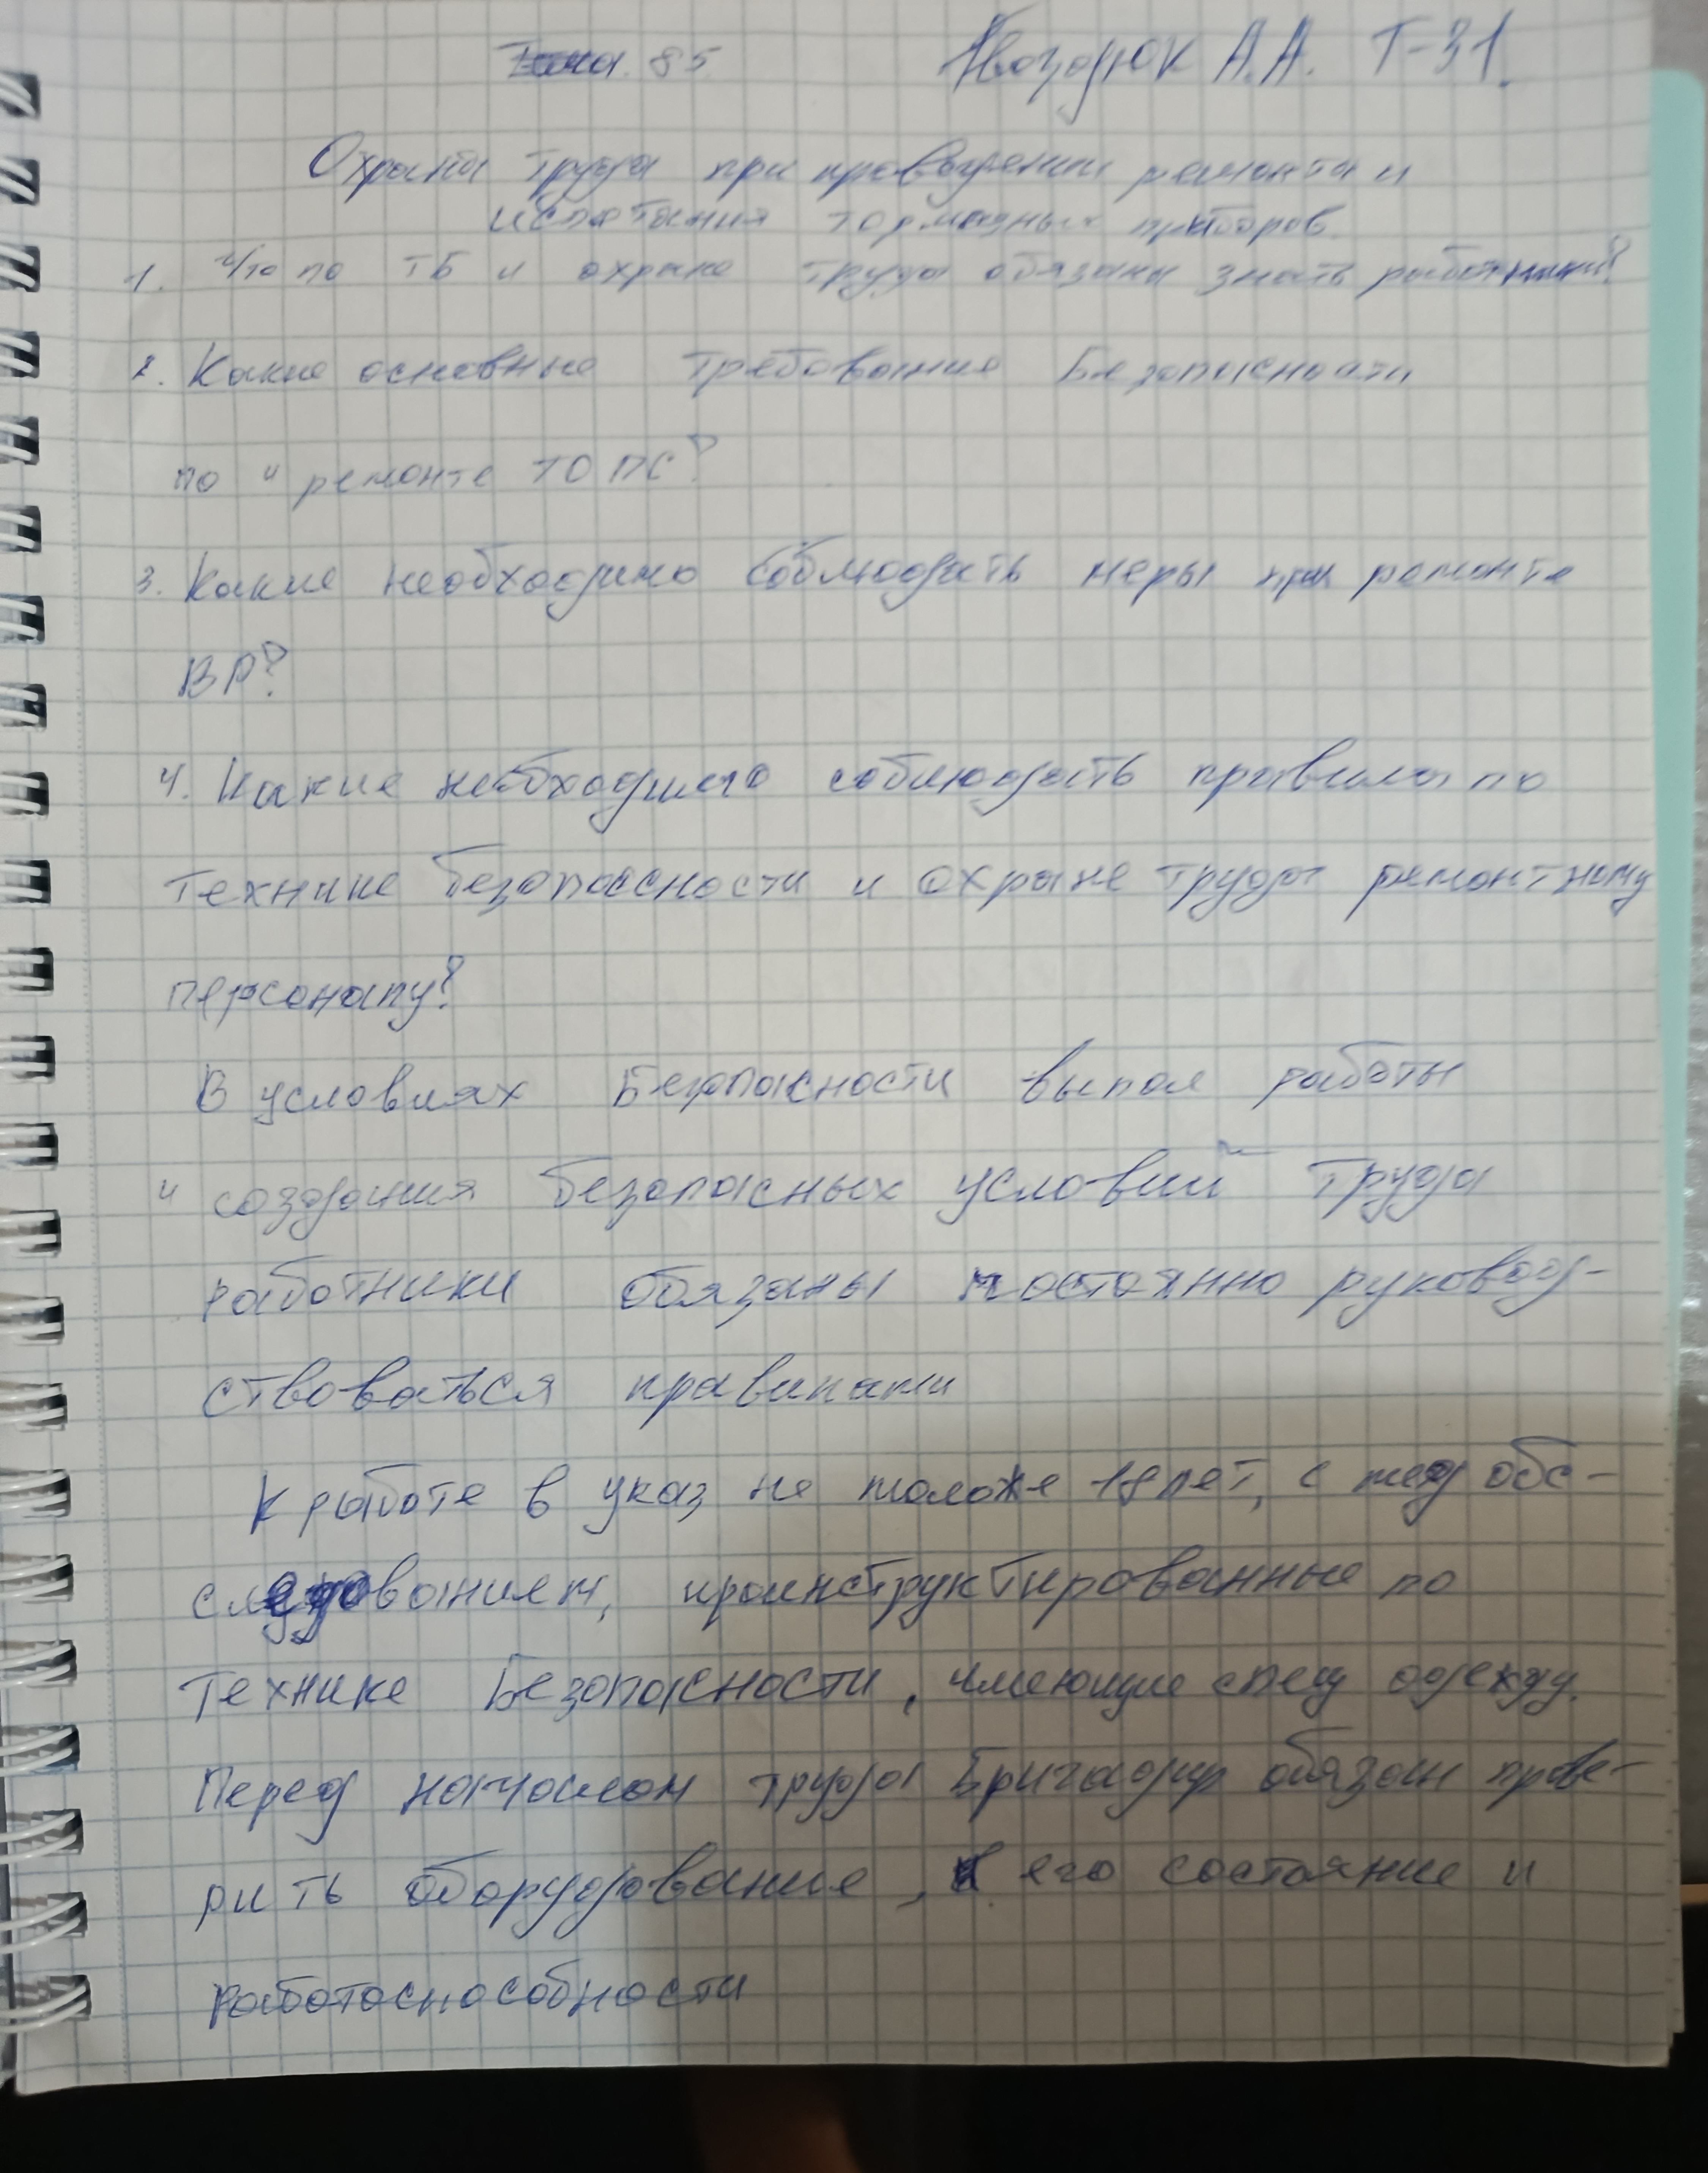 Тема 85 Гвоздюк А.А. Т-31.
Охрана труда при проведении ремонта и
испытания тормазных приборов.
1. Что по ТБ и охране труда обязаны знать работники?
2. Какие основные требования Безопасности
по и ремонте ТО ПС?
3. Какие необходимо соблюдать меры при ремонте
ВР?
4. Какие необходимо соблюдать правила по
технике безопасности и охране труда ремонтному
персоналу?
В условиях Безопасности выпол работы
и создания безопасных условий труда
работники обязаны постоянно руковод-
ствоваться правилами
К работе в указ не моложе 18 лет, с мед обс-
ледованием, проинструктированные по
технике Безопасности, имеющие спец одежду.
Перед началом труда Бригадир обязан прове-
рить оборудование, его состояние и
работоспособности